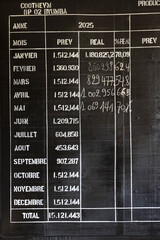 COOTHEVM
OP 02 BYUMBA
ANNEE 2025
MOIS PREV REAL %REAL PREV
JANVIER 1.512.144 1.180.825 78,09
FEVRIER 1.360.930
MARS 1.512.144 829.477 54,8
AVRIL 1.512.144 1.002.954
MAI 1.512.144 1.069.141 70,7
JUIN 1.209.715
JUILLET 604.858
AOUT 453.643
SEPTEMBRE 907.287
OCTOBRE 1.512.144
NOVEMBRE 1.512.144
DECEMBRE 1.512.144
TOTAL 15.121.443